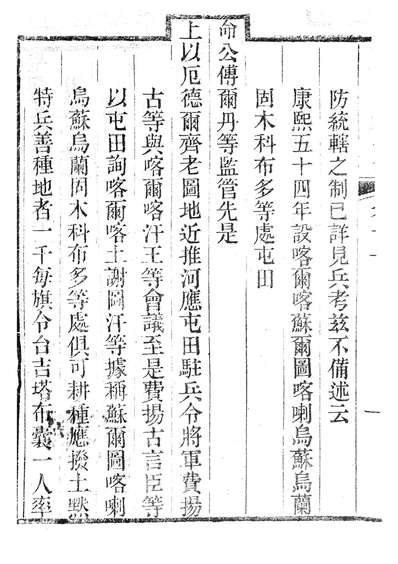 防統轄之制已詳見兵考茲不備述云
康熙五十四年設喀爾喀蘇爾圖喀喇烏蘇烏蘭
固木科布多等處屯田
命公傅爾丹等監管先是
上以厄德爾齊老圖地近推河應屯田駐兵令將軍費揚
古等與喀爾喀汗王等會議至是費揚古言臣等
以屯田詢喀爾喀土謝圖汗等據稱蘇爾圖喀喇
烏蘇烏蘭固木科布多等處俱可耕種應撥土默
特兵善種地者一千每旗令台吉塔布囊一人率